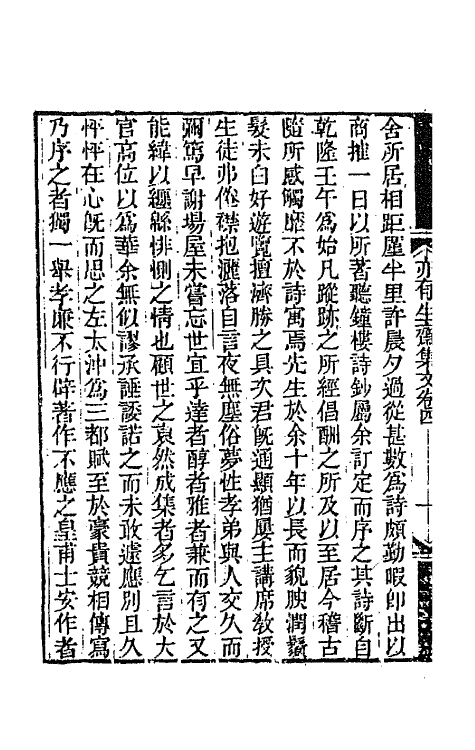 亦有生齋集文卷四
舍所居相距廛半里許晨夕過從甚數爲詩頗勤暇卽出以
商搉一日以所著聽鐘樓詩鈔屬余訂定而序之其詩斷自
乾隆壬午爲始凡蹤跡之所經倡酬之所及以至居今稽古
隨所感觸靡不於詩寓焉先生於余十年以長而貌腴潤鬚
髮未白好遊覽擅濟勝之具次君旣通顯猶屢主講席敎授
生徒弗倦襟抱灑落自言夜無塵俗夢性孝弟與人交久而
彌篤早謝場屋未嘗忘世宜乎達者醇者雅者兼而有之又
能緯以纒緜悱惻之情也顧世之裒然成集者多乞言於大
官高位以爲華余無似謬承諈諉諾之而未敢遽應別且久
怦怦在心旣而思之左太沖爲三都賦至於豪貴競相傳寫
乃序之者獨一舉孝廉不行辟著作不應之皇甫士安作者